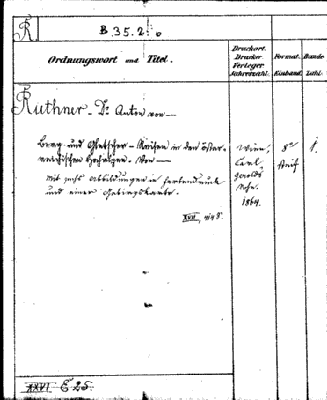 R
B. 35. 2.
Ordnungswort und Titel.
Druckort. Drucker. Verleger. Jahreszahl.
Format. Einband.
Bände Zahl.
Ruthner - Dr. Anton von —
Berg- und Gletscher-Reisen in den öster-
reichischen Hochalpen. Von —
Mit sechs Abbildungen in Farbendruck
und einer Gebirgskarte.
Wien,
Carl
Gerolds
Sohn.
1864.
8°
steif
1.
XXVI E 25